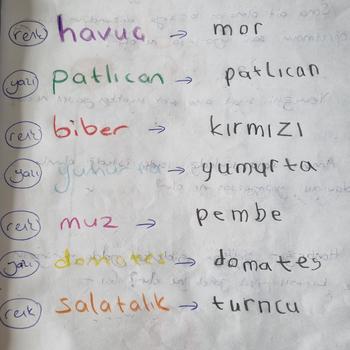 renk havuç → mor
yazı patlıcan → patlıcan
renk biber → kırmızı
yazı yumurta → yumurta
renk muz → pembe
yazı domates → domates
renk salatalık → turncu